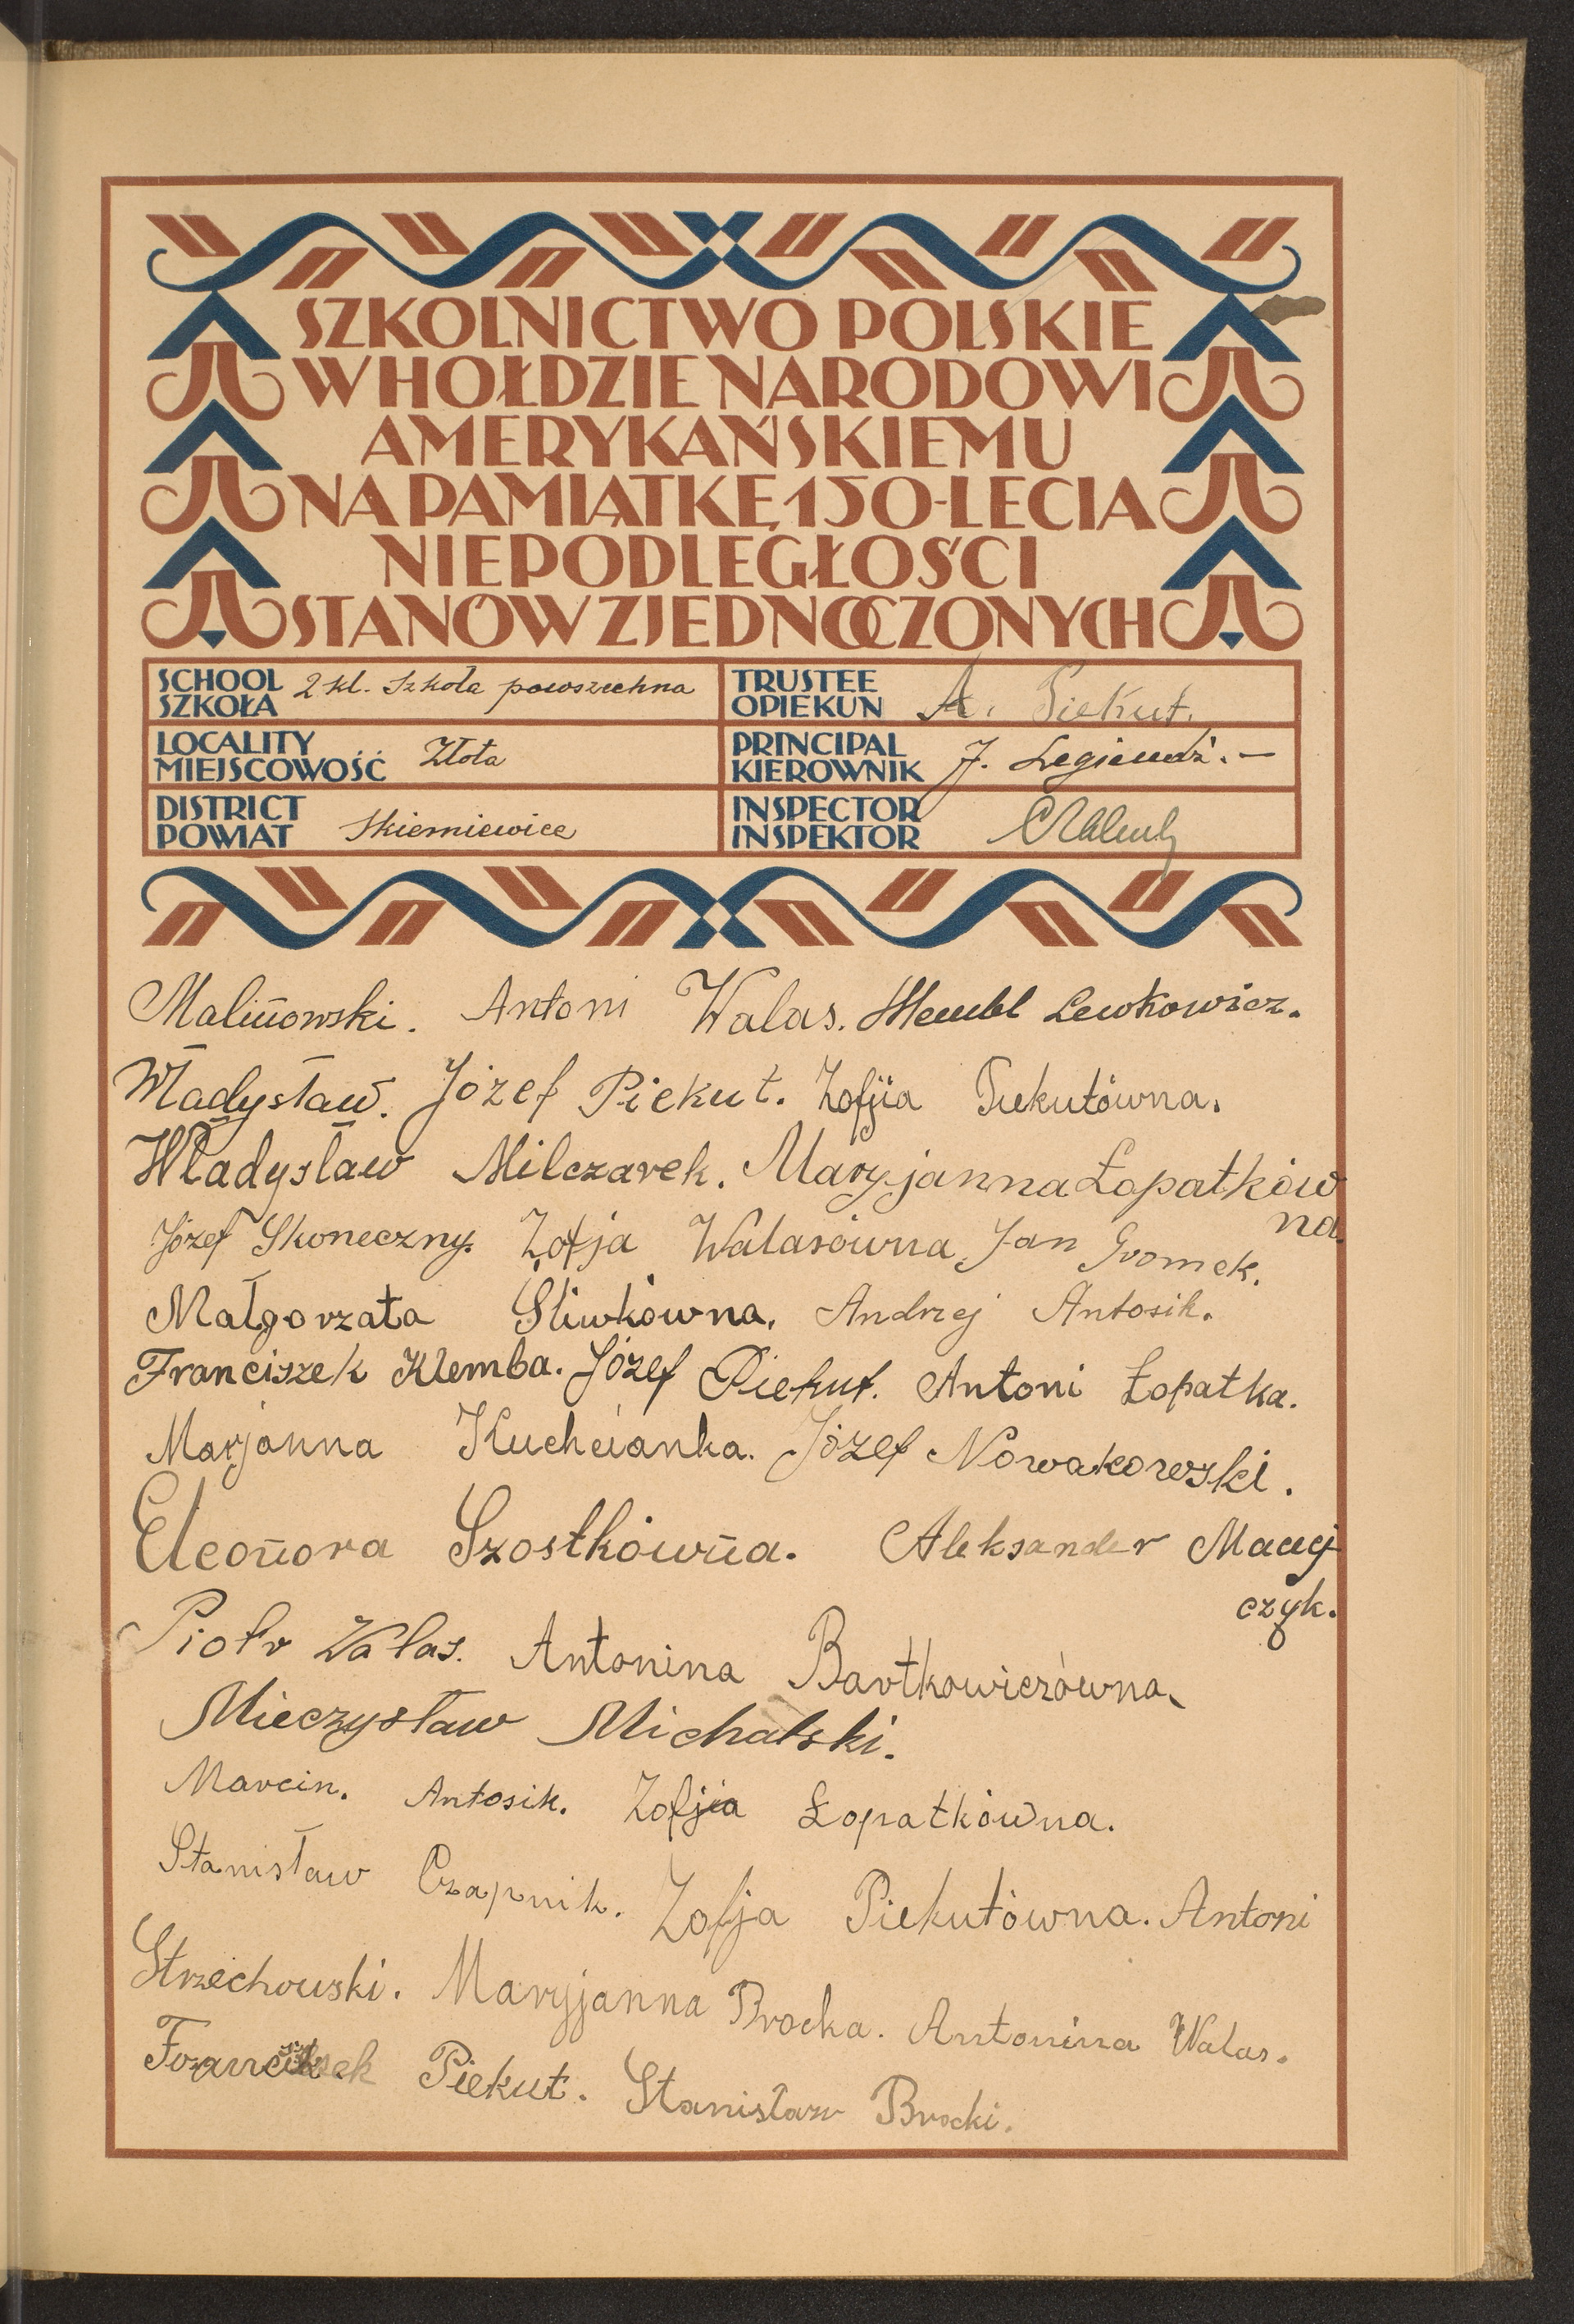 SZKOLNICTWO POLSKIE
W HOŁDZIE NARODOWI
AMERYKAŃSKIEMU
NA PAMIĄTKĘ 150-LECIA
NIEPODLEGŁOŚCI
STANÓW ZJEDNOCZONYCH
SCHOOL
SZKOŁA
2 kl. Szkoła powszechna
TRUSTEE
OPIEKUN
A. Piekut.
LOCALITY
MIEJSCOWOŚĆ
Złota
PRINCIPAL
KIEROWNIK
J. Legiendź. —
DISTRICT
POWIAT
Skierniewice
INSPECTOR
INSPEKTOR
Malinowski. Antoni Walas. Lewkowicz.
Władysław. Józef Piekut. Zofjia Piekutówna.
Władysław Milczarek. Maryjanna Łopatków
na.
Józef Skoneczny. Zofja Walasówna, Jan Gromek.
Małgorzata Śliwkówna. Andrzej Antosik.
Franciszek Klemba. Józef Piekut. Antoni Łopatka.
Marjanna Kuchcianka. Józef Nowakowski.
Eleonora Szostkówna. Aleksander Maciej
czyk.
Piotr Walas. Antonina Bartkowiczówna.
Mieczysław Michalski.
Marcin. Antosik. Zofjia Łopatkówna.
Stanisław Czapnik. Zofja Piekutówna. Antoni
Strzechowski. Maryjanna Brocka. Antonina Walas.
Franciszek Piekut. Stanisław Brocki.